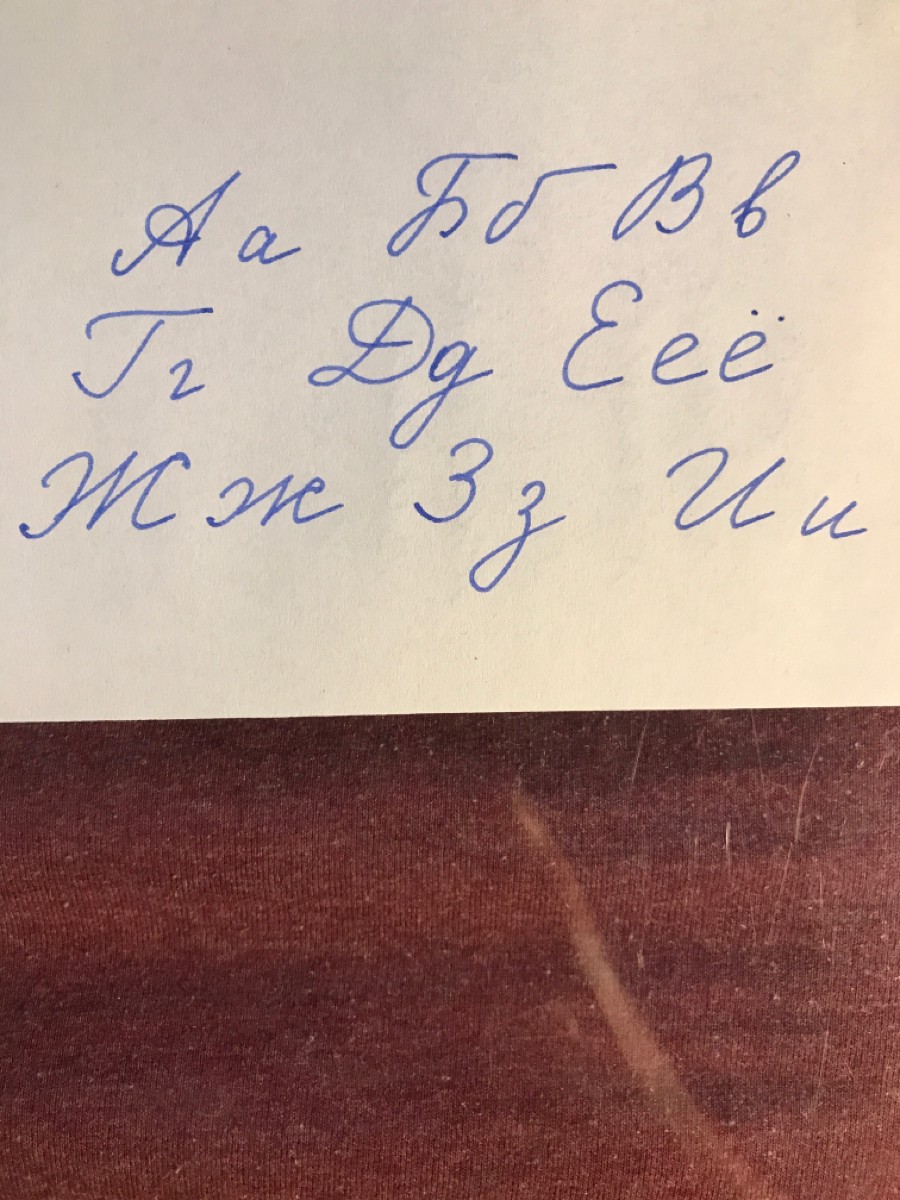 Аа Бб Вв
Гг Дд Ееё
Жж Зз Ии